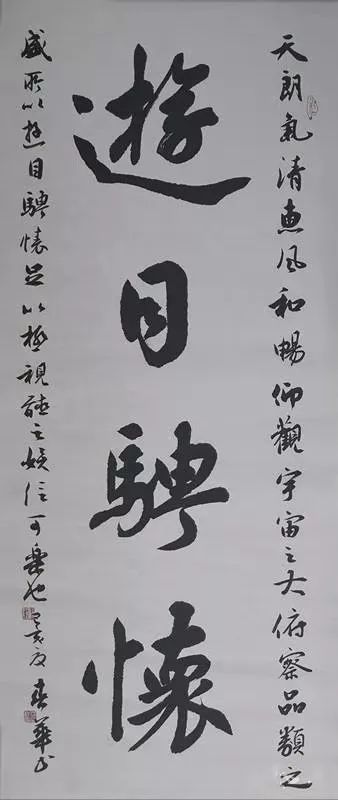 遊目騁懷
天朗氣清惠風和暢仰觀宇宙之大俯察品類之
盛所以遊目騁懷足以極視聽之娛信可樂也己亥夏